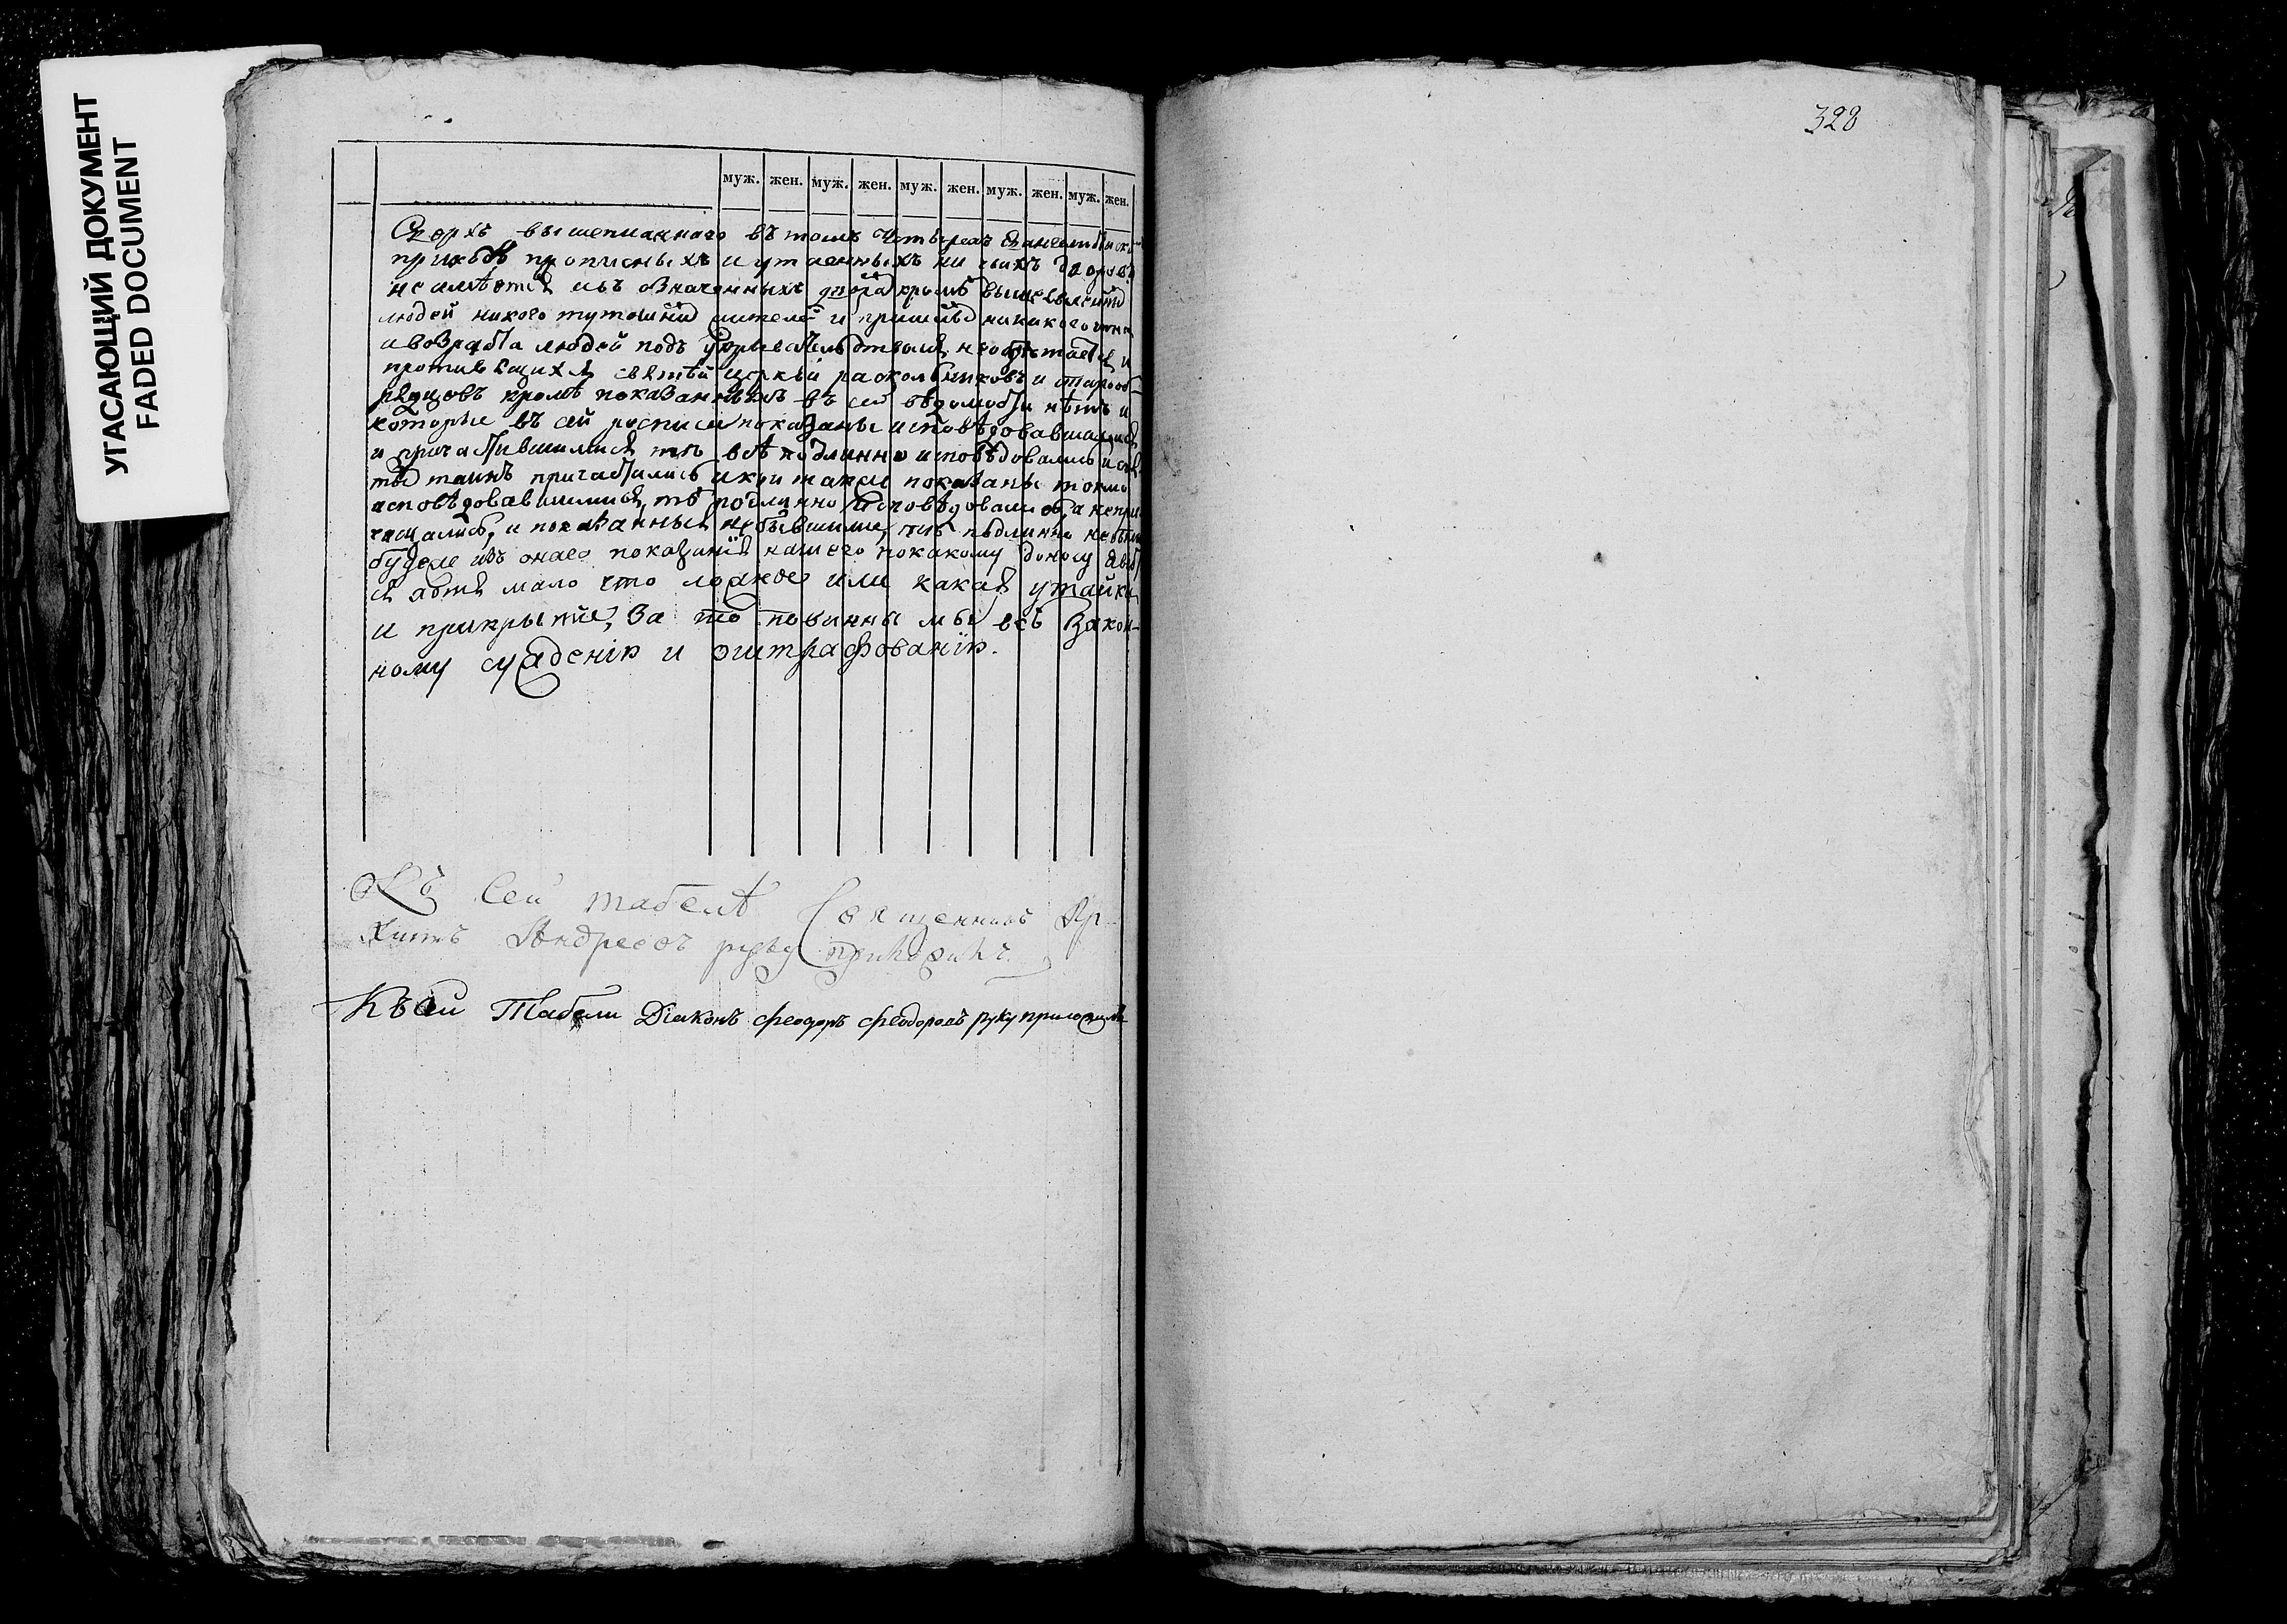 УГАСАЮЩИЙ ДОКУМЕНТ
FADED DOCUMENT
328
муж. жен. муж. жен. муж. жен. муж. жен. муж. жен.
Сверхъ вышеписаннаго въ томъ Четырехъ Евангелистиско
приходѣ прописныхъ и утаенныхъ ни чьихъ дворовъ
не имѣется и въ Означенныхъ кромѣ
людей никого и никакого чина
и возраста людей подъ и
противящихся святѣй церкьви раскольниковъ и старооб-
рядцовъ кромѣ показанныхъ въ сей вѣдомости нѣтъ и
которые въ сей росписи показаны исповѣдовавшимися
и причастившимися тѣ всѣ подлинно исповѣдовались и свя
тыхъ таинъ причастились и кои также показаны токмо
исповѣдовавшимися, тѣ подлинно Исповѣдовались, а непри
чащались, и показанныя небывшими, тѣ подлинно небыли
буделе изъ онаго показанія нашего покакому доносу явит
ся хотя мало что ложное или какая утайка
и прикрытіе, За то повинны мы всѣ Закон-
ному суждению и оштрафованію.
Къ Сей табелѣ Священникъ
Андреевъ руку приложилъ
Къ сей Табели Діаконъ Феодоръ Феодоровъ руку приложилъ